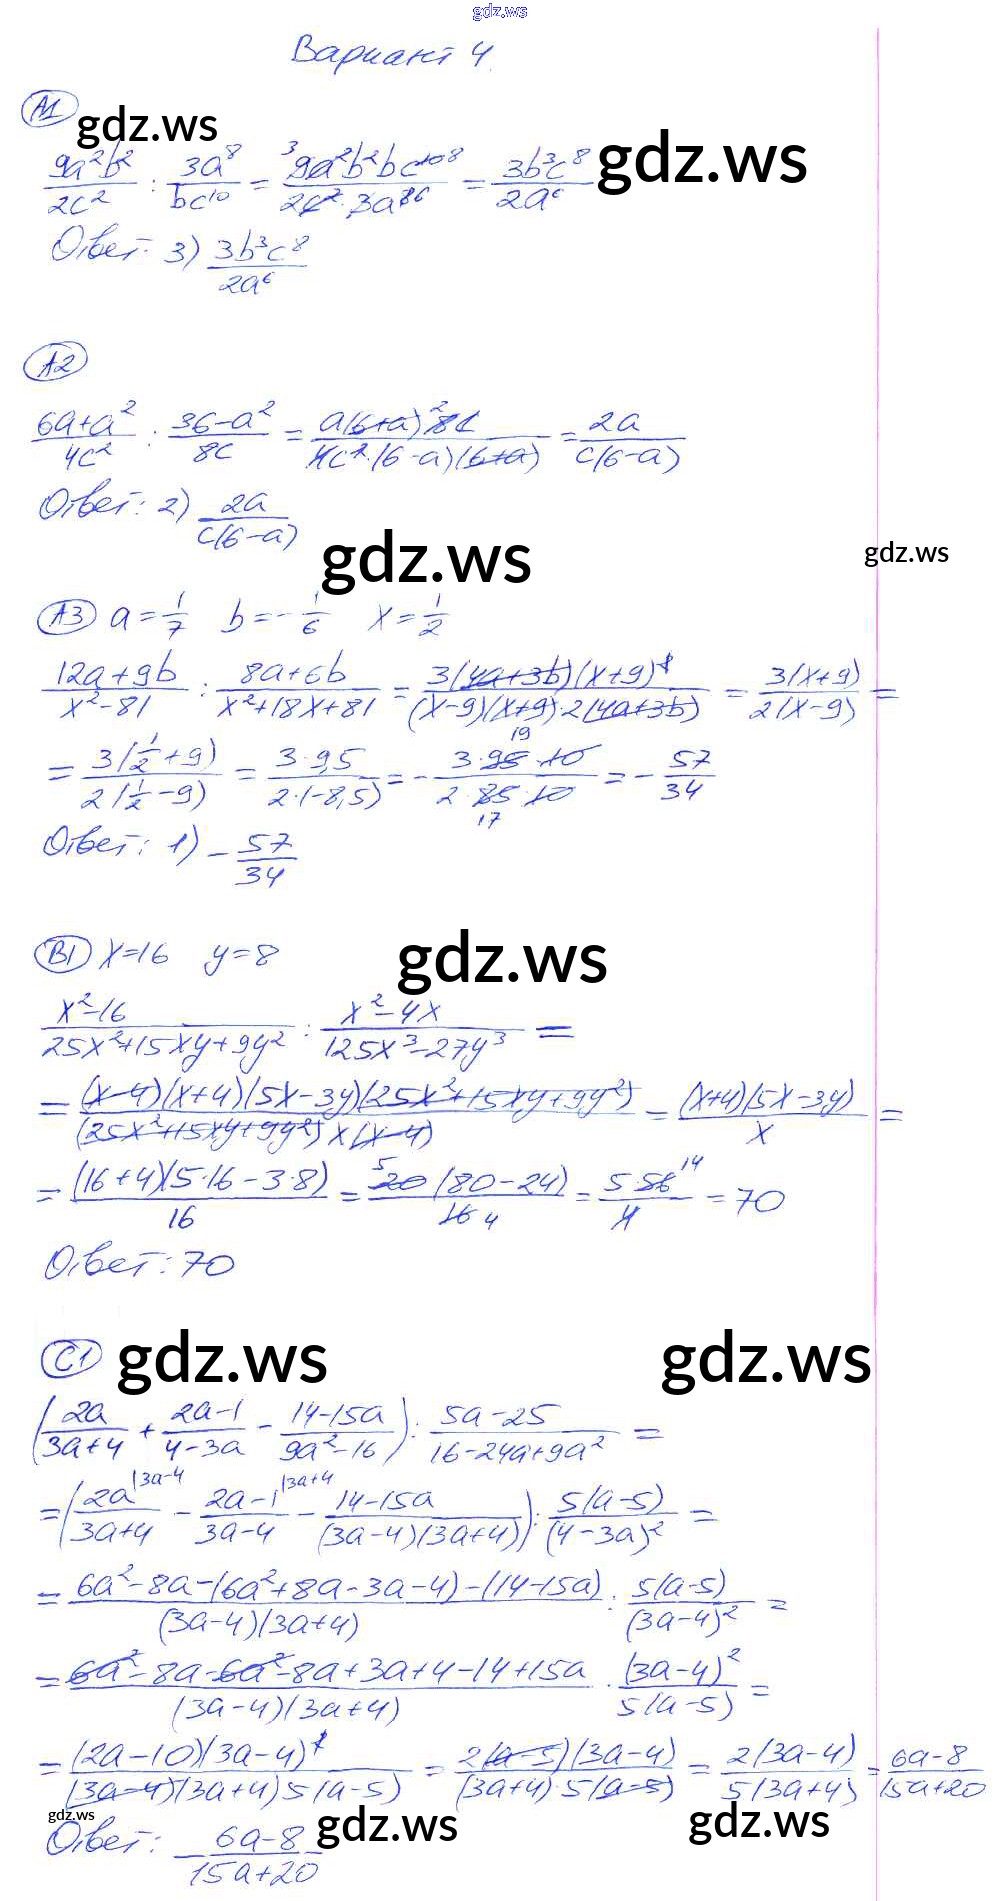 gdz.ws
Вариант 4.
A1 gdz.ws
9a²b²/2c² : 3a⁸/bc¹⁰ = ³9a²b²bc¹⁰ ⁸/2c²·3a⁸ ⁶ = 3b³c⁸/2a⁶ gdz.ws
Ответ: 3) 3b³c⁸/2a⁶
A2
6a+a²/4c² : 36-a²/8c = a(6+a) ²8c/4c²·(6-a)(6+a) = 2a/c(6-a)
Ответ: 2) 2a/c(6-a)
gdz.ws gdz.ws
A3 a=1/7 b=-1/6 x=1/2
12a+9b/x²-81 : 8a+6b/x²+18x+81 = 3(4a+3b)(x+9)²/(x-9)(x+9)·2(4a+3b) = 3(x+9)/2(x-9) =
= 3(1/2+9)/2(1/2-9) = 3·9,5/2·(-8,5) = - 3·95·10/2·85·10 = - 57/34
19
17
Ответ: 1) - 57/34
B1 x=16 y=8 gdz.ws
x²-16/25x²+15xy+9y² : x²-4x/125x³-27y³ =
= (x-4)(x+4)(5x-3y)(25x²+15xy+9y²)/(25x²+15xy+9y²)x(x-4) = (x+4)(5x-3y)/x =
= (16+4)(5·16-3·8)/16 = ⁵20(80-24)/16 4 = 5·56 ¹⁴/4 = 70
Ответ: 70
C1 gdz.ws gdz.ws
(2a/3a+4 + 2a-1/4-3a - 14-15a/9a²-16) : 5a-25/16-24a+9a² =
= (2a|3a-4/3a+4 - 2a-1|3a+4/3a-4 - 14-15a/(3a-4)(3a+4)) : 5(a-5)/(4-3a)² =
= 6a²-8a-(6a²+8a-3a-4)-(14-15a)/(3a-4)(3a+4) : 5(a-5)/(3a-4)² =
= 6a²-8a-6a²-8a+3a+4-14+15a/(3a-4)(3a+4) : (3a-4)²/5(a-5) =
= (2a-10)(3a-4)²/(3a-4)(3a+4)5(a-5) = 2(a-5)(3a-4)/(3a+4)·5(a-5) = 2(3a-4)/5(3a+4) = 6a-8/15a+20
gdz.ws gdz.ws gdz.ws
Ответ: 6a-8/15a+20